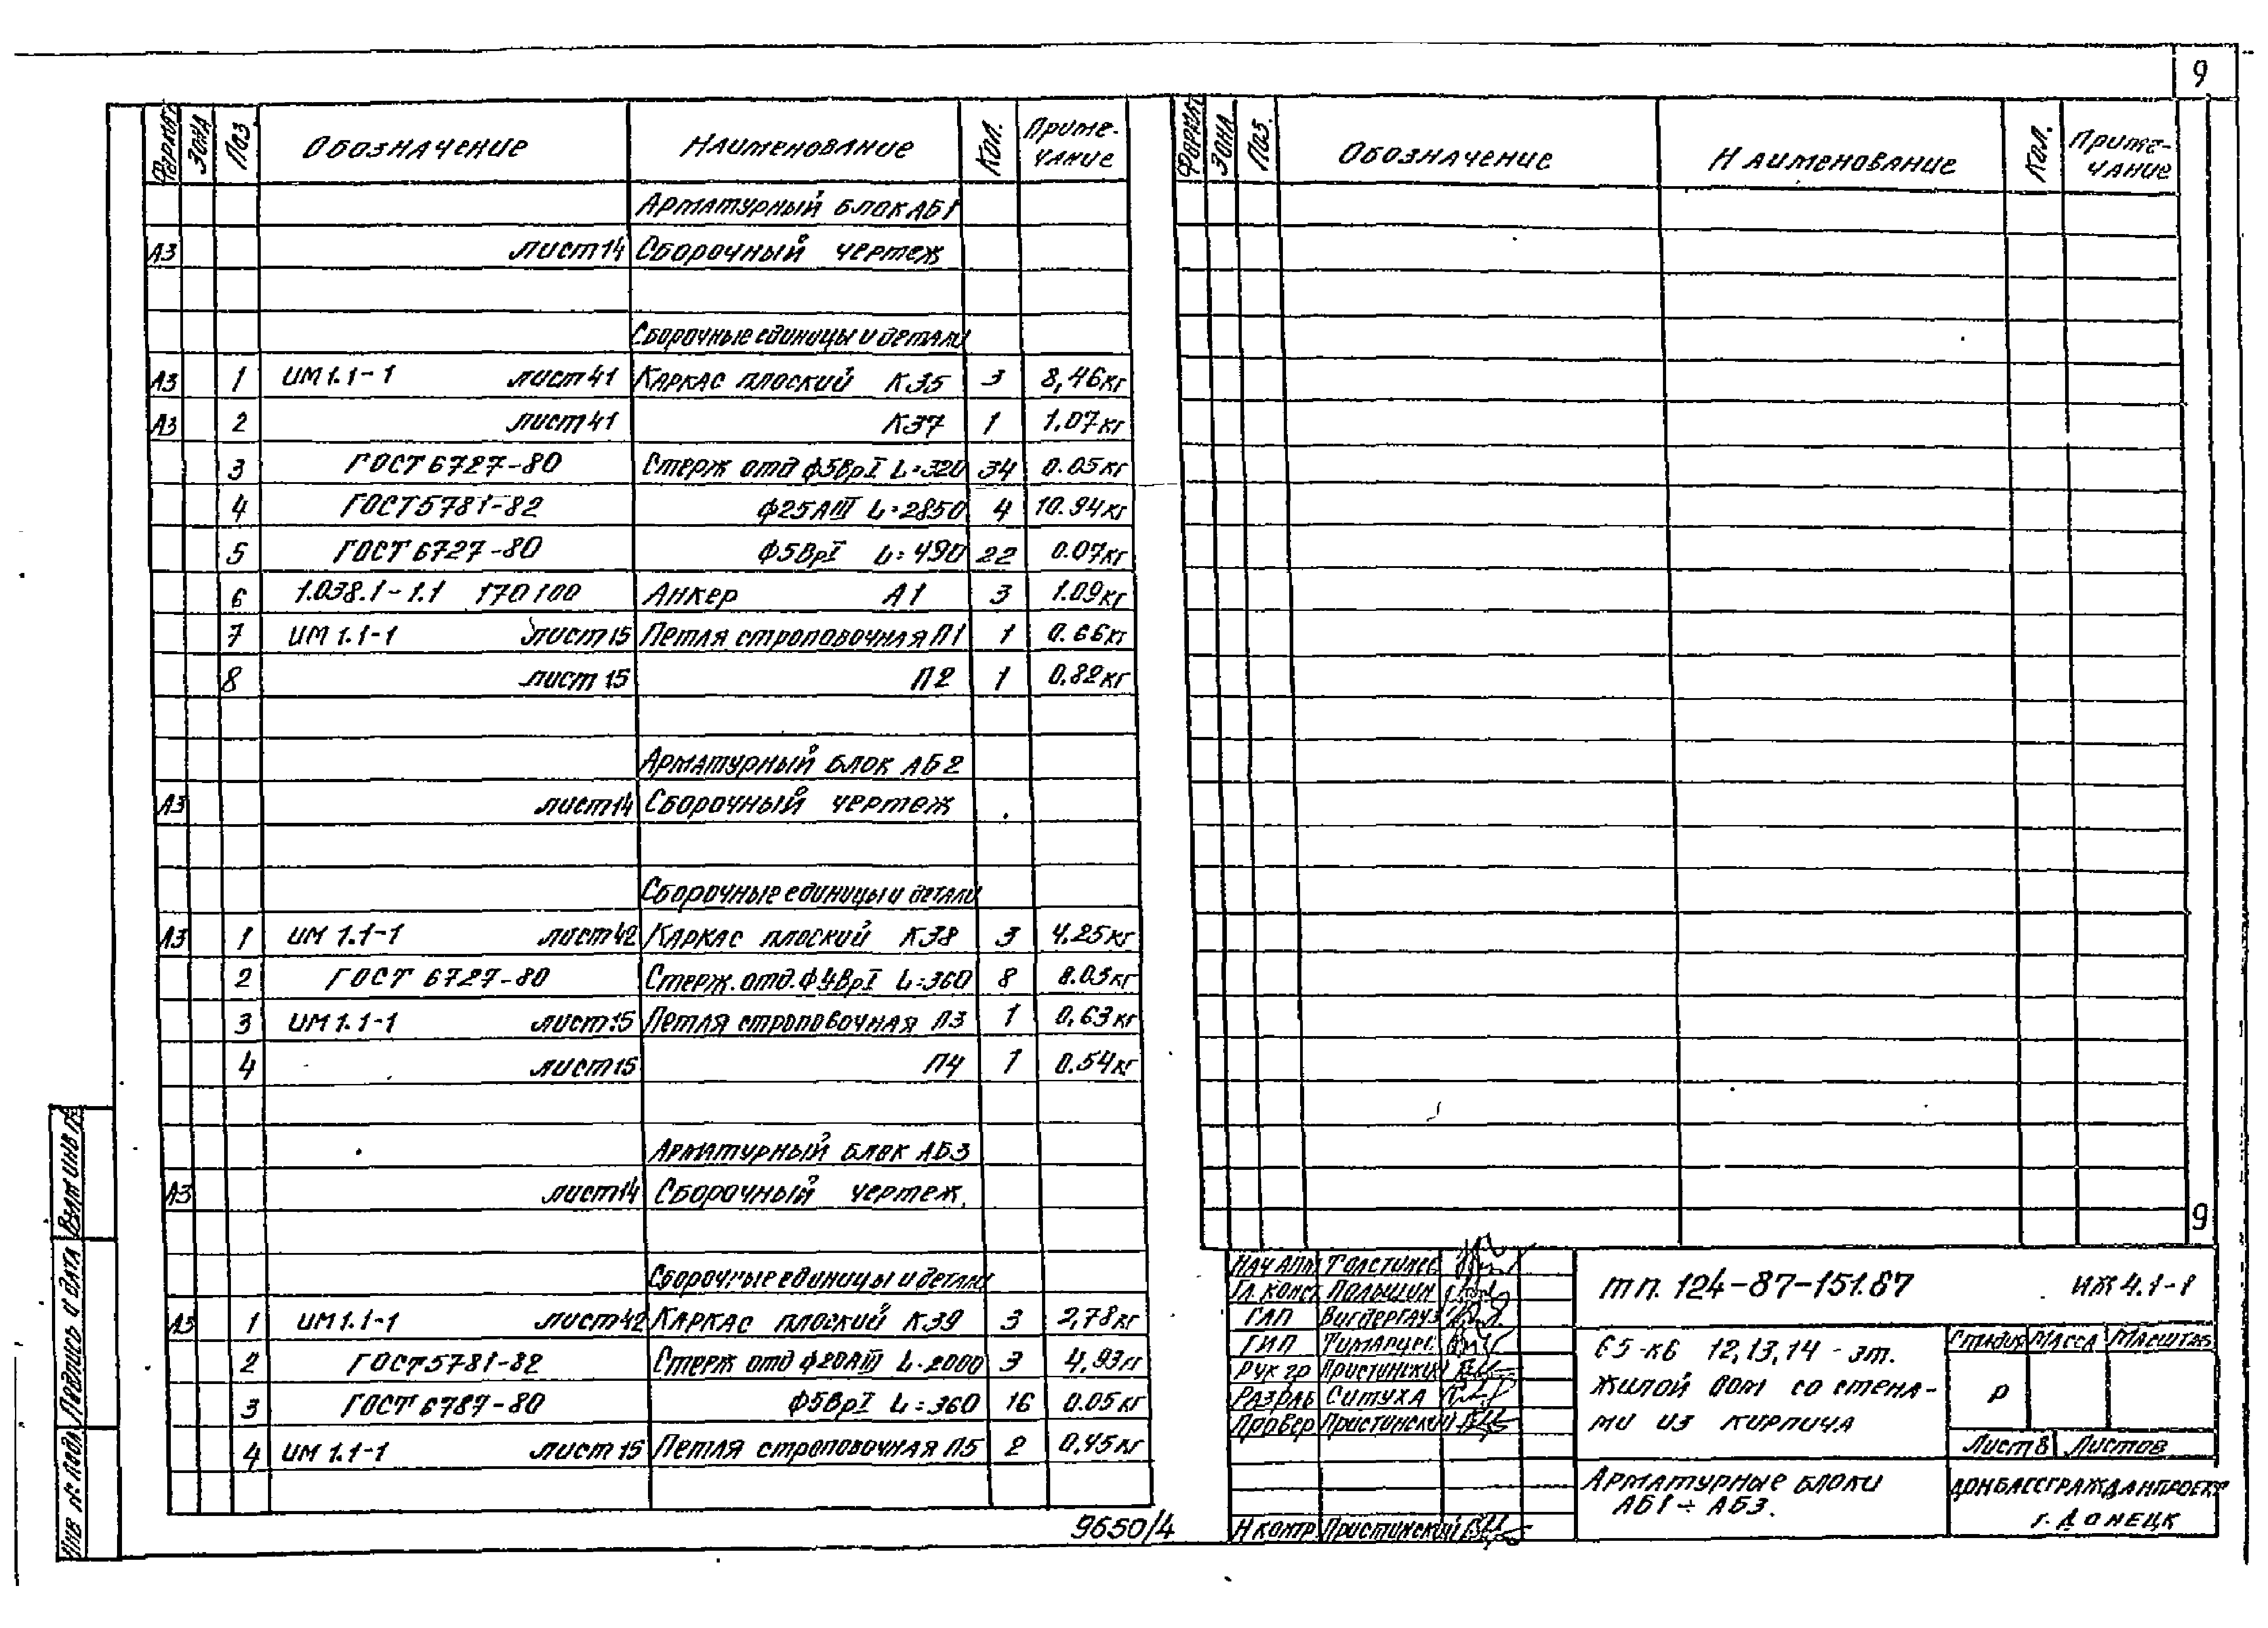 9
Формат Зона Поз Обозначение Наименование Кол. Приме-чание
Арматурный блок АБ1
А3 лист 14 Сборочный чертеж
Сборочные единицы и детали
А3 1 ИМ 1.1-1 лист 41 Каркас плоский К35 3 8,46кг
А3 2 лист 41 К37 1 1.07кг
3 ГОСТ 6727-80 Стерж отд ф5ВрI L=320 34 0.05кг
4 ГОСТ 5781-82 ф25АIII L=2850 4 10.94кг
5 ГОСТ 6727-80 ф5ВрI L=490 22 0.07кг
6 1.038.1-1.1 170100 Анкер А1 3 1.09кг
7 ИМ 1.1-1 лист 15 Петля строповочная П1 1 0.66кг
8 лист 15 П2 1 0.82кг
Арматурный блок АБ2
А3 лист 14 Сборочный чертеж
Сборочные единицы и детали
А3 1 ИМ 1.1-1 лист 42 Каркас плоский К38 3 4.25кг
2 ГОСТ 6727-80 Стерж. отд. L=360 8
3 ИМ 1.1-1 лист 15 Петля строповочная П3 1 0,63кг
4 лист 15 П4 1 0.54кг
Арматурный блок АБ3
А3 лист 14 Сборочный чертеж.
Сборочные единицы и детали
А3 1 ИМ 1.1-1 лист 42 Каркас плоский К39 3 2,78кг
2 ГОСТ 5781-82 Стерж отд ф20АIII L=2000 3 4,93кг
3 ГОСТ 6787-80 ф5ВрI L=360 16 0.05кг
4 ИМ 1.1-1 лист 15 Петля строповочная П5 2 0,45кг
9650/4
Формат Зона Поз. Обозначение Наименование Кол. Приме-чание
9
Нач АПМ
Гл. конс.
ГАП
ГИП
Рук гр Пристинский
Разраб Ситуха
Провер Пристинский
Н контр Пристинский
тп. 124-87-151.87 ИЖ 4.1-1
65-кв 12,13,14 - эт.
жилой дом со стена-
ми из кирпича
Стадия Масса Масштаб
Р
Лист 8 Листов
Арматурные блоки
АБ1 ÷ АБ3.
ДОНБАССГРАЖДАНПРОЕКТ
г. Донецк
Взам инв №
Подпись и дата
Инв № подл